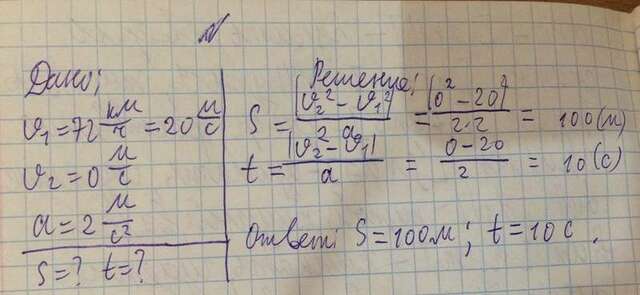 N
Дано:
υ₁=72 км/ч =20 м/с
υ₂=0 м/с
a=2 м/с²
S=? t=?
Решение:
S = |υ₂² – υ₁²| / 2a = |0² – 20²| / 2·2 = 100 (м)
t = |υ₂ – υ₁| / a = 0 – 20 / 2 = 10 (с)
Ответ: S=100м; t=10с.